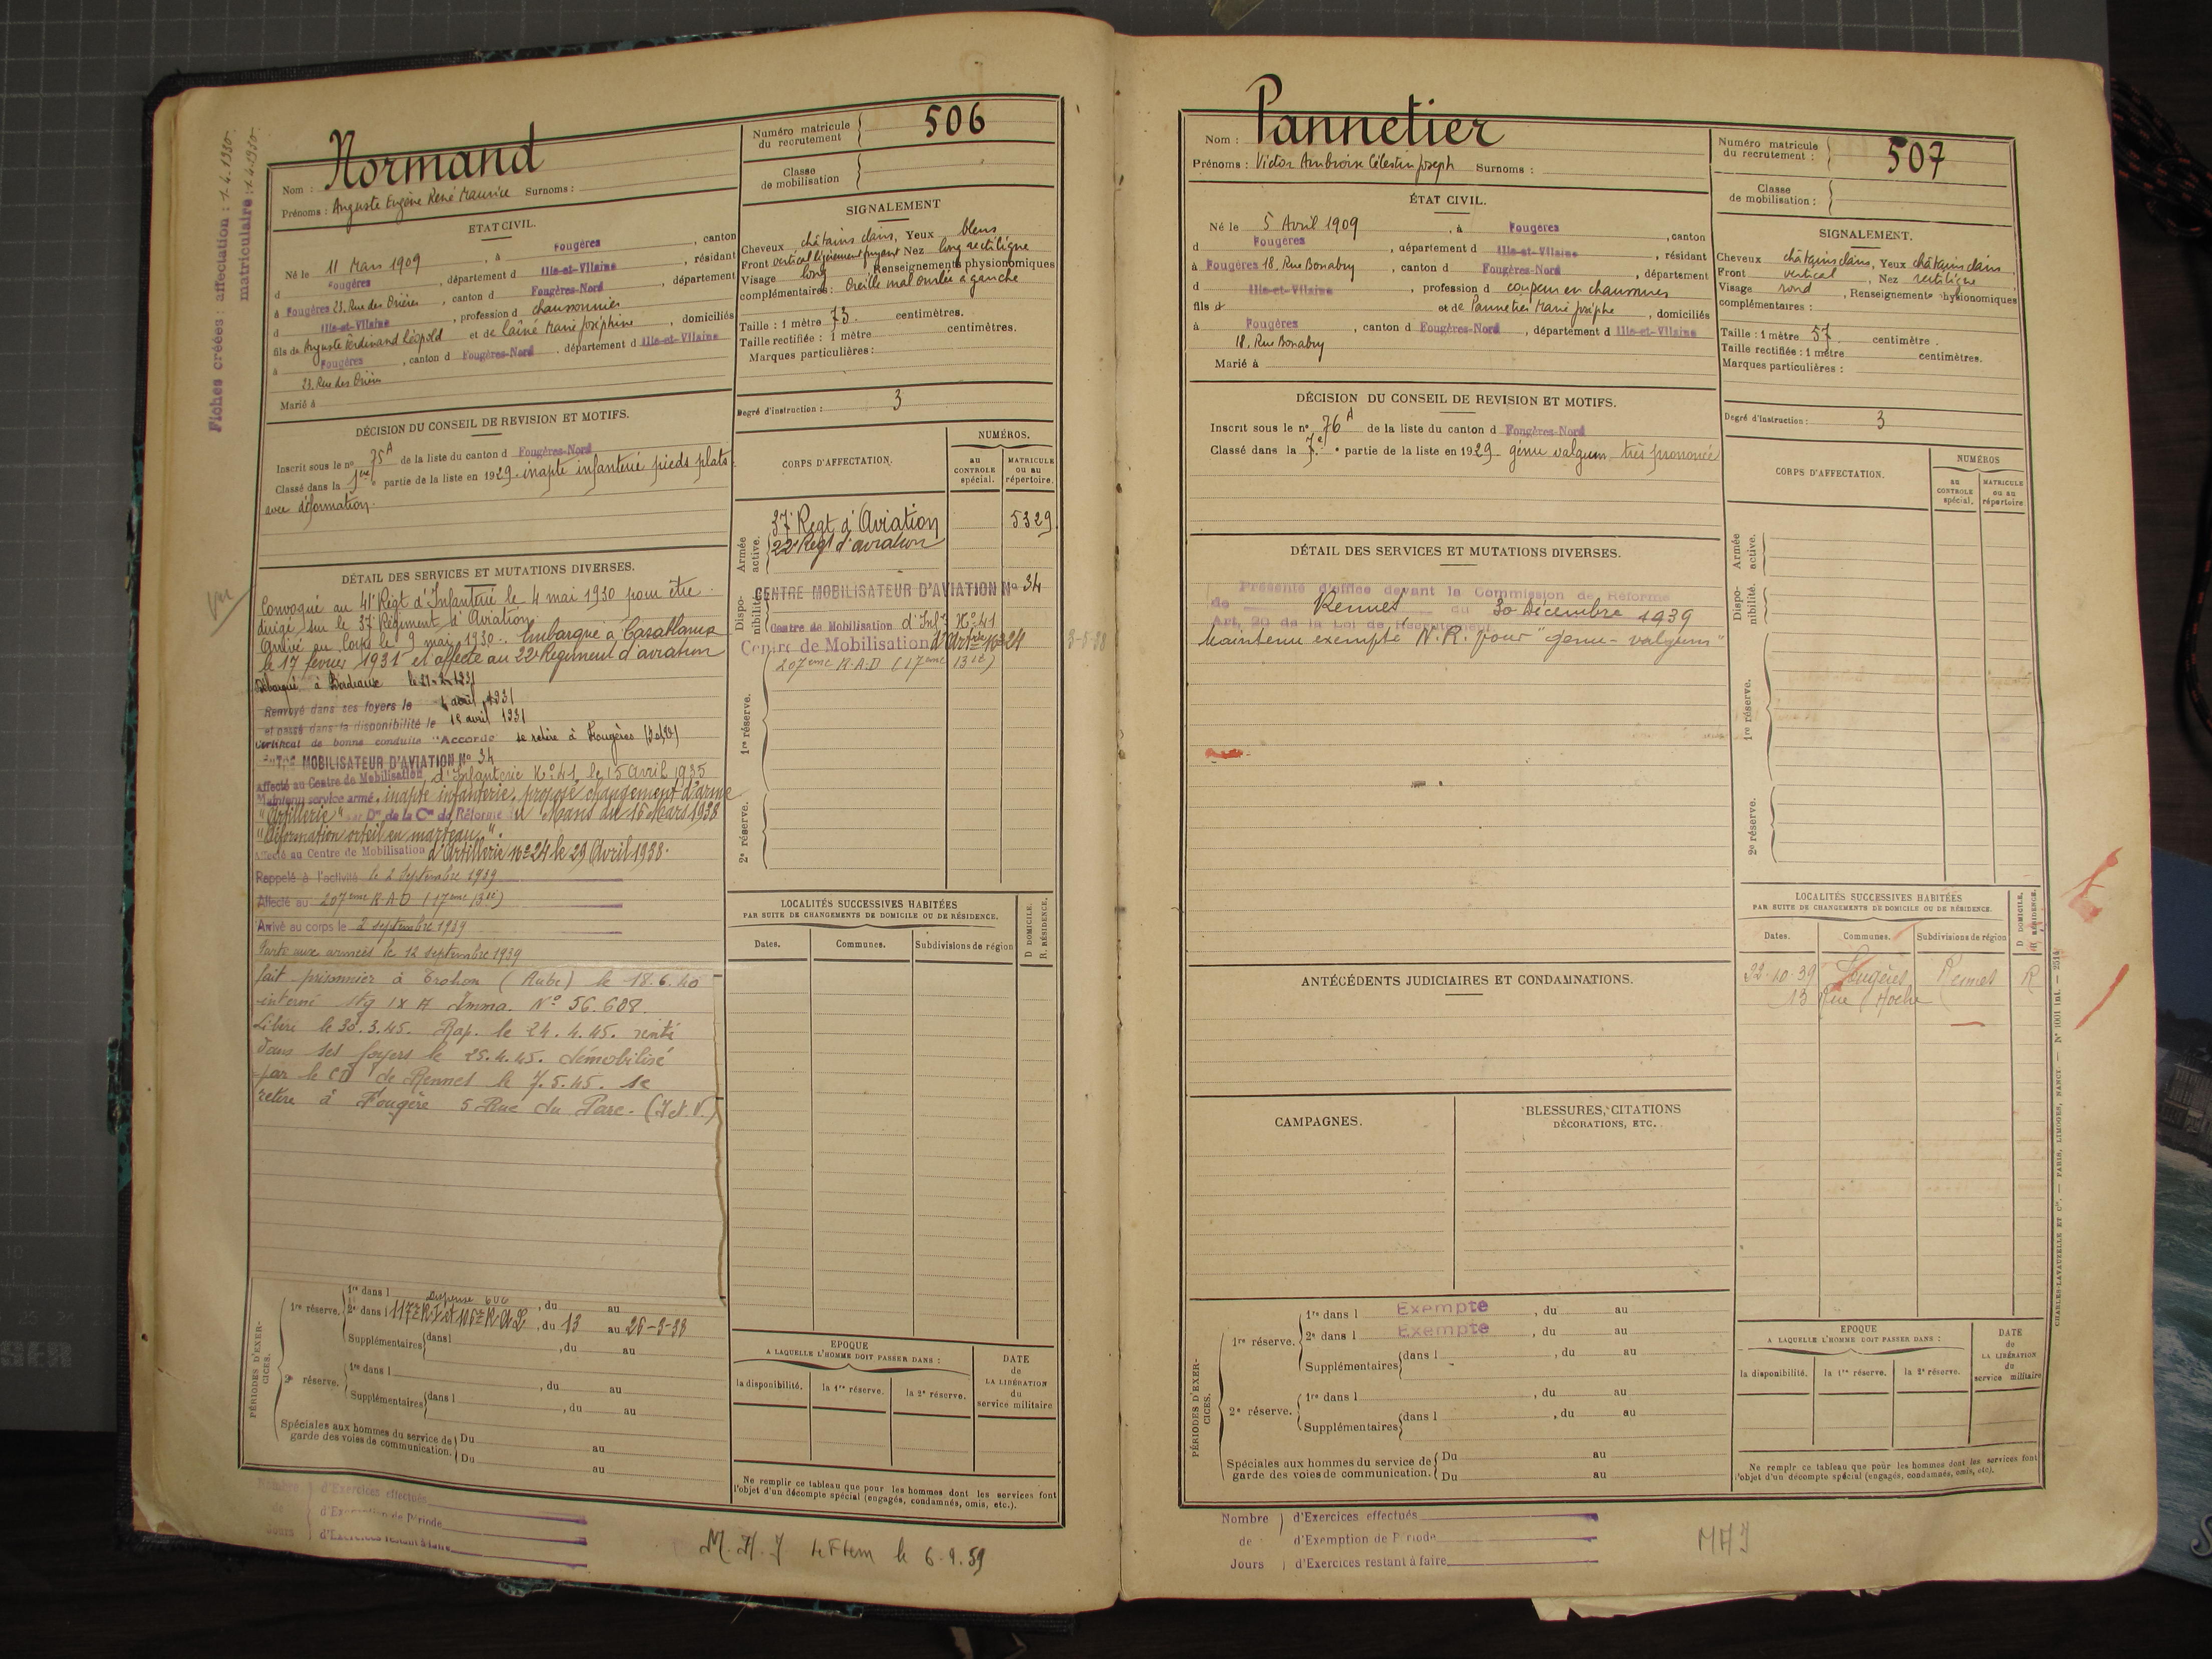 Fiches créées : affectation : 1.4.1930.
matriculaire : 1.4.1930
Nom : Normand
Prénoms : Auguste Eugène René Maurice Surnoms :
ETAT CIVIL.
Né le 11 Mars 1909 , à Fougères , canton
d Fougères , département d Ille-et-Vilaine , résidant
à Fougères 23. Rue des , canton d Fougères-Nord , département
d Ille-et-Vilaine , profession d chaussonnier
fils de Auguste Ferdinand Léopold et de Laîné Marie Joséphine , domiciliés
à Fougères , canton d Fougères-Nord , département d Ille-et-Vilaine
23. Rue des
Marié à
DÉCISION DU CONSEIL DE REVISION ET MOTIFS.
Inscrit sous le no 75A de la liste du canton d Fougères-Nord
Classé dans la 1ère partie de la liste en 1929. inapte infanterie pieds plats
avec déformation.
DÉTAIL DES SERVICES ET MUTATIONS DIVERSES.
Vu
Convoqué au 41e Régt d'Infanterie le 4 mai 1930 pour être
dirigé sur le 37e Régiment d'Aviation
Arrivé au Corps le 9 mai 1930. Embarqué à Casablanca
le 17 février 1931 et affecté au 22e Régiment d'aviation
Débarqué à Bordeaux le 21.2.1931
Renvoyé dans ses foyers le avril 1931
et passé dans la disponibilité le 18 avril 1931
Certificat de bonne conduite "Accordé" se retire à Fougères (I et V)
MOBILISATEUR D'AVIATION No 34
Affecté au Centre de Mobilisation d'Infanterie No 41 le 15 Avril 1935
Maintenu service armé. inapte infanterie. proposé changement d'arme
"Artillerie" Don de la Con de Réforme du Mans du 16 Mars 1938
"Déformation orteil en marteau".
Affecté au Centre de Mobilisation d'Artillerie no 24 le 29 Avril 1938.
Rappelé à l'activité le 2 Septembre 1939
Affecté au 207ème R.A.D (17ème Bie)
Arrivé au corps le 2 septembre 1939
Parti aux armées le 12 septembre 1939
fait prisonnier à Trohon (Aube) le 18.6.40
interné Stg IX A Imma. No 56.608.
Libéré le 30.3.45. Rap. le 24.4.45. rentré
dans ses foyers le 25.4.45. démobilisé
par le CD de Rennes le 7.5.45. se
retire à Fougère 5 Rue du Parc. (I et V.)
PÉRIODES D'EXERCICES.
1re réserve. 1re dans l Dispense , du au
2e dans l 117e R.I et 106e R.A.L , du 13 au 26-3-38
Supplémentaires dans l , du au
2e réserve. 1re dans l , du au
Supplémentaires dans l , du au
Spéciales aux hommes du service de garde des voies de communication. Du au
Du au
Nombre de Jours d'Exercices effectués
d'Exemption de Période
d'Exercices restant à faire
Numéro matricule du recrutement 506
Classe de mobilisation
SIGNALEMENT
Cheveux châtains clairs, Yeux bleus
Front vertical légèrement fuyant Nez long rectiligne
Visage long , Renseignements physionomiques
complémentaires : Oreille mal ourlée à gauche
Taille : 1 mètre 73. centimètres.
Taille rectifiée : 1 mètre centimètres.
Marques particulières :
Degré d'instruction : 3
CORPS D'AFFECTATION.
NUMÉROS.
au CONTROLE spécial.
MATRICULE ou au répertoire.
Armée active.
37e Régt d'Aviation 5329
22e Régt d'aviation
Disponibilité.
CENTRE MOBILISATEUR D'AVIATION No 34
Centre de Mobilisation d'Infie No 41
Centre de Mobilisation d'Artie No 24 3-5-38
207eme R.A.D (17eme Bie)
1re réserve.
2e réserve.
LOCALITÉS SUCCESSIVES HABITÉES
PAR SUITE DE CHANGEMENTS DE DOMICILE OU DE RÉSIDENCE.
Dates. Communes. Subdivisions de région
D DOMICILE. R. RÉSIDENCE.
EPOQUE
A LAQUELLE L'HOMME DOIT PASSER DANS :
la disponibilité. la 1re réserve. la 2e réserve.
DATE de LA LIBÉRATION du service militaire
Ne remplir ce tableau que pour les hommes dont les services font
l'objet d'un décompte spécial (engagés, condamnés, omis, etc.).
M.H.J le 6.9.59
Nom : Pannetier
Prénoms : Victor Ambroise Célestin Joseph Surnoms :
ÉTAT CIVIL.
Né le 5 Avril 1909 , à Fougères , canton
d Fougères , département d Ille-et-Vilaine , résidant
à Fougères 18, Rue Bonabry , canton d Fougères-Nord , département
d Ille-et-Vilaine , profession d coupeur en chaussures
fils d et de Pannetier Marie Josèphe , domiciliés
à Fougères , canton d Fougères-Nord , département d Ille-et-Vilaine
18, Rue Bonabry
Marié à
DÉCISION DU CONSEIL DE REVISION ET MOTIFS.
Inscrit sous le no 76A de la liste du canton d Fougères-Nord
Classé dans la 7e partie de la liste en 1929 génu valgum très prononcé
DÉTAIL DES SERVICES ET MUTATIONS DIVERSES.
Présenté d'office devant la Commission de Réforme
de Rennes du 30 Décembre 1939
Art. 20 de la Loi de Recrutement
Maintenu exempté N.R. pour "genu-valgum"
ANTÉCÉDENTS JUDICIAIRES ET CONDAMNATIONS.
CAMPAGNES.
BLESSURES, CITATIONS
DÉCORATIONS, ETC.
PÉRIODES D'EXERCICES.
1re réserve. 1re dans l Exempté , du au
2e dans l Exempté , du au
Supplémentaires dans l , du au
2e réserve. 1re dans l , du au
Supplémentaires dans l , du au
Spéciales aux hommes du service de garde des voies de communication. Du au
Du au
Nombre de Jours d'Exercices effectués
d'Exemption de Période
d'Exercices restant à faire
MHJ
Numéro matricule du recrutement : 507
Classe de mobilisation :
SIGNALEMENT.
Cheveux châtains clairs, Yeux châtains clairs
Front vertical , Nez rectiligne
Visage rond , Renseignements physionomiques
complémentaires :
Taille : 1 mètre 57. centimètre .
Taille rectifiée : 1 mètre centimètres.
Marques particulières :
Degré d'instruction : 3
CORPS D'AFFECTATION.
NUMÉROS
au CONTROLE spécial.
MATRICULE ou au répertoire
Armée active.
Disponibilité.
1re réserve.
2e réserve.
LOCALITÉS SUCCESSIVES HABITÉES
PAR SUITE DE CHANGEMENTS DE DOMICILE OU DE RÉSIDENCE.
Dates. Communes. Subdivisions de région
D DOMICILE. R RÉSIDENCE.
22.10.39 Fougères Rennes R
13 Rue Hoche
EPOQUE
A LAQUELLE L'HOMME DOIT PASSER DANS :
la disponibilité. la 1re réserve. la 2e réserve.
DATE de LA LIBÉRATION du service militaire
Ne remplr ce tableau que pour les hommes dont les services font
l'objet d'un décompte spécial (engagés, condamnés, omis, etc).
CHARLES-LAVAUZELLE ET Cie. — PARIS, LIMOGES, NANCY. — No 1001 Int. — 2514